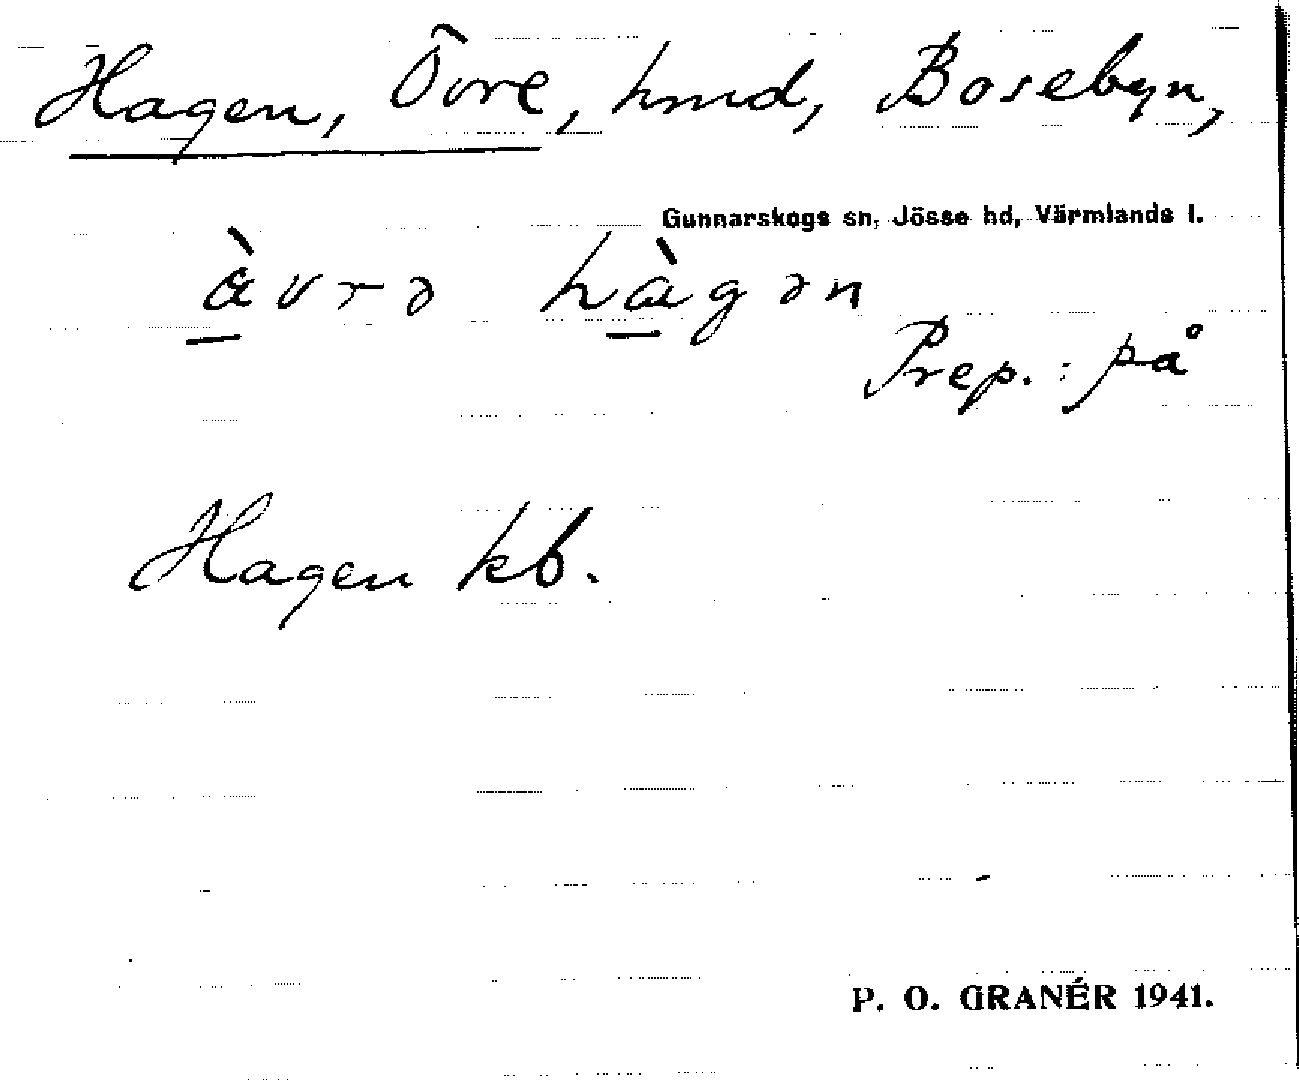 Hagen, Övre, hmd, Bosebyn,
Gunnarskogs sn, Jösse hd, Värmlands l.
àvrə hàgən
Prep.: på
Hagen kb.
P. O. GRANÉR 1941.